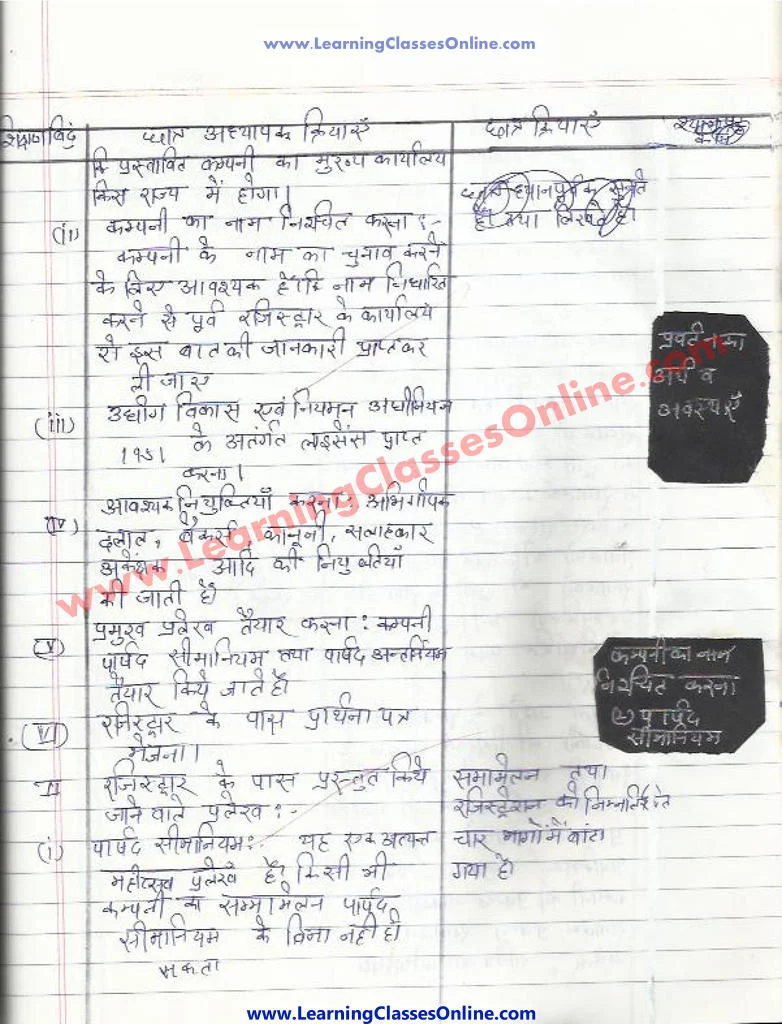 www.LearningClassesOnline.com
शिक्षण बिंदु
छात्र अध्यापक क्रियाएँ
छात्र क्रियाएँ
श्यामपट्ट
कि प्रस्तावित कम्पनी का मुख्य कार्यालय
किस राज्य में होगा।
(ii) कम्पनी का नाम निश्चित करना :-
कम्पनी के नाम का चुनाव करने
के लिए आवश्यक है कि नाम निर्धारित
करने से पूर्व रजिस्ट्रार के कार्यालय
से इस बात की जानकारी प्राप्त कर
ली जाए
(iii) उद्योग विकास एवं नियमन अधिनियम
1951 के अतंर्गत लाइसेंस प्राप्त
करना।
(iv) आवश्यक नियुक्तियाँ करना : अभिगोपक
दलाल, बैंकर्स, कानूनी, सलाहकार
अकेंक्षक आदि की नियुक्तियाँ
की जाती है।
(v) प्रमुख प्रलेख तैयार करना : कम्पनी
पार्षद सीमानियम तथा पार्षद अन्तर्नियम
तैयार किये जाते है।
(vi) रजिस्ट्रार के पास प्रार्थना पत्र
भेजना।
II रजिस्ट्रार के पास प्रस्तुत किये
जाने वाले प्रलेख :-
(i) पार्षद सीमानियम :- यह एक अत्यन्त
महत्वपूर्ण प्रलेख है। किसी भी
कम्पनी का सम्मामेलन पार्षद
सीमानियम के बिना नही हो
सकता
छात्र ध्यानपूर्वक सुनते
है। तथा लिखते है।
समामेलन तथा
रजिस्ट्रेशन को निम्नलिखित
चार भागों में बांटा
गया है।
प्रवर्तन का
अर्थ व
अवस्थाएँ
कम्पनी का नाम
निश्चित करना
पार्षद
सीमानियम
www.LearningClassesOnline.com
www.LearningClassesOnline.com